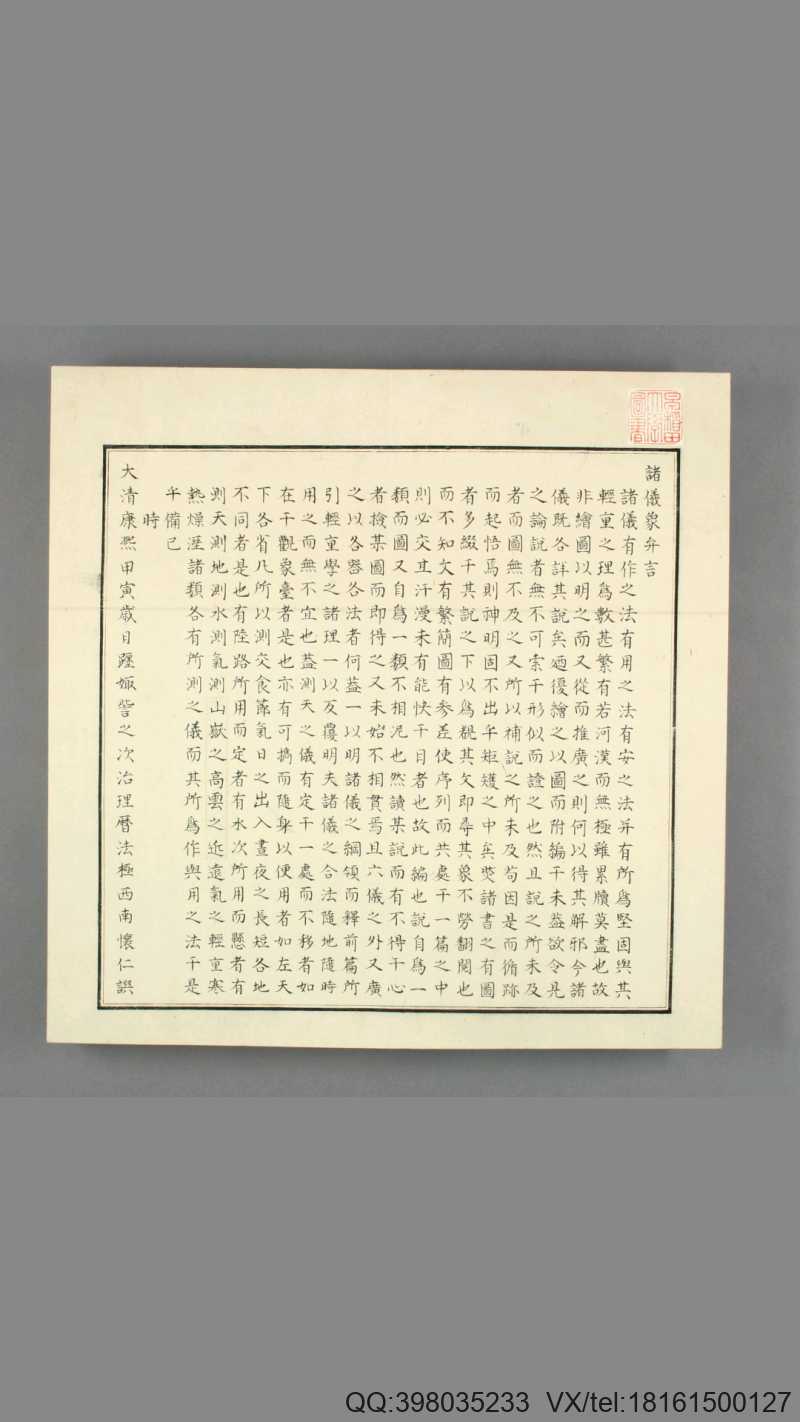 諸儀象弁言
諸儀有作之法有用之法有安之法幷有所爲堅固與其
輕重之理爲數甚繁有若河漢而無極雖累牘莫盡也故
非繪圖以明之而又從而推廣之則何以得其解邪今諸
儀既各詳其說矣廼復繪之以圖而附編于末蓋欲令見
之論說者無不可索于形似而證之也然且說之所未及
者而圖無不及之又所以補說之所未及苟因是而循跡
而起悟焉則神明固不出乎矩矱之中矣獎諸書之有圖
者多綴于其說之下以爲覩其文即尋其象不勞翻閱也
而不知文有繁簡圖有參差使序列而共處于一篇之中
則必交互汗漫未有能快于目者也故此編也說自爲一
類而圖又自爲一類不相混也然讀某說而有不得于心
者檢某圖而即得之又未始不相貫焉且六儀之外又廣
之以各器各法者何蓋一以明諸儀之綱領而釋前篇所
引輕重學之諸理一以反覆明夫諸儀之合法隨地隨時
用之而無不宜也蓋測天之儀有定于一處而不移者如
在于觀象臺者是也亦有可擕而隨身以便用者如左天
下各省凡所以測交食節氣日之出入晝夜之長短各地
不同者是也有陸路所用而定者有水次所用而懸者有
測天測地測水測氣測山嶽之高雲之近遠氣之輕重寒
熱燥溼諸類各有所測之儀而其所爲作與用之法于是
乎備已
時
大清康熙甲寅歲日躔娵訾之次治理曆法極西南懷仁譔
QQ:398035233 VX/tel:18161500127